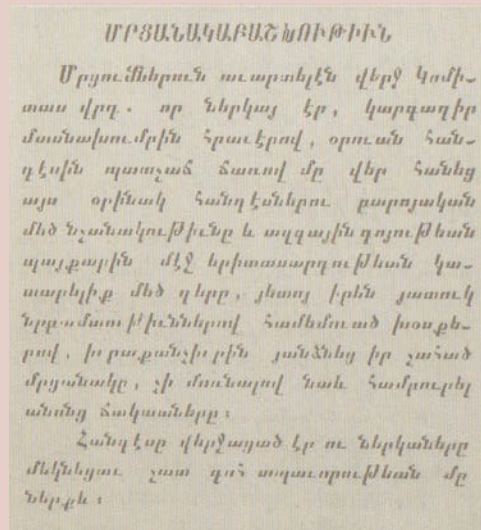 ՄՐՑԱՆԱԿԱԲԱՇԽՈՒԹԻՒՆ
Մրցումներուն աւարտելէն վերջ Կոմի-
տաս վրդ. որ ներկայ էր, կարգադիր
մասնախումբին հրաւէրով, օրուան հան-
դէսին պատշաճ ճառով մը վեր հանեց
այս օրինակ հանդէսներու բարոյական
մեծ նշանակութիւնը և ազգային գոյութեան
պայքարին մէջ երիտասարդութեան կա-
տարելիք մեծ դերը, յետոյ իրեն յատուկ
նրբամտութիւններով համեմուած խօսքե-
րով, իւրաքանչիւրին յանձնեց իր շահած
մրցանակը, չի մոռնալով նաև համբուրել
անոնց ճակատները։
Հանդէսը վերջացած էր ու ներկաները
մեկնեցաւ շատ գոհ տպաւորութեան մը
ներքև։